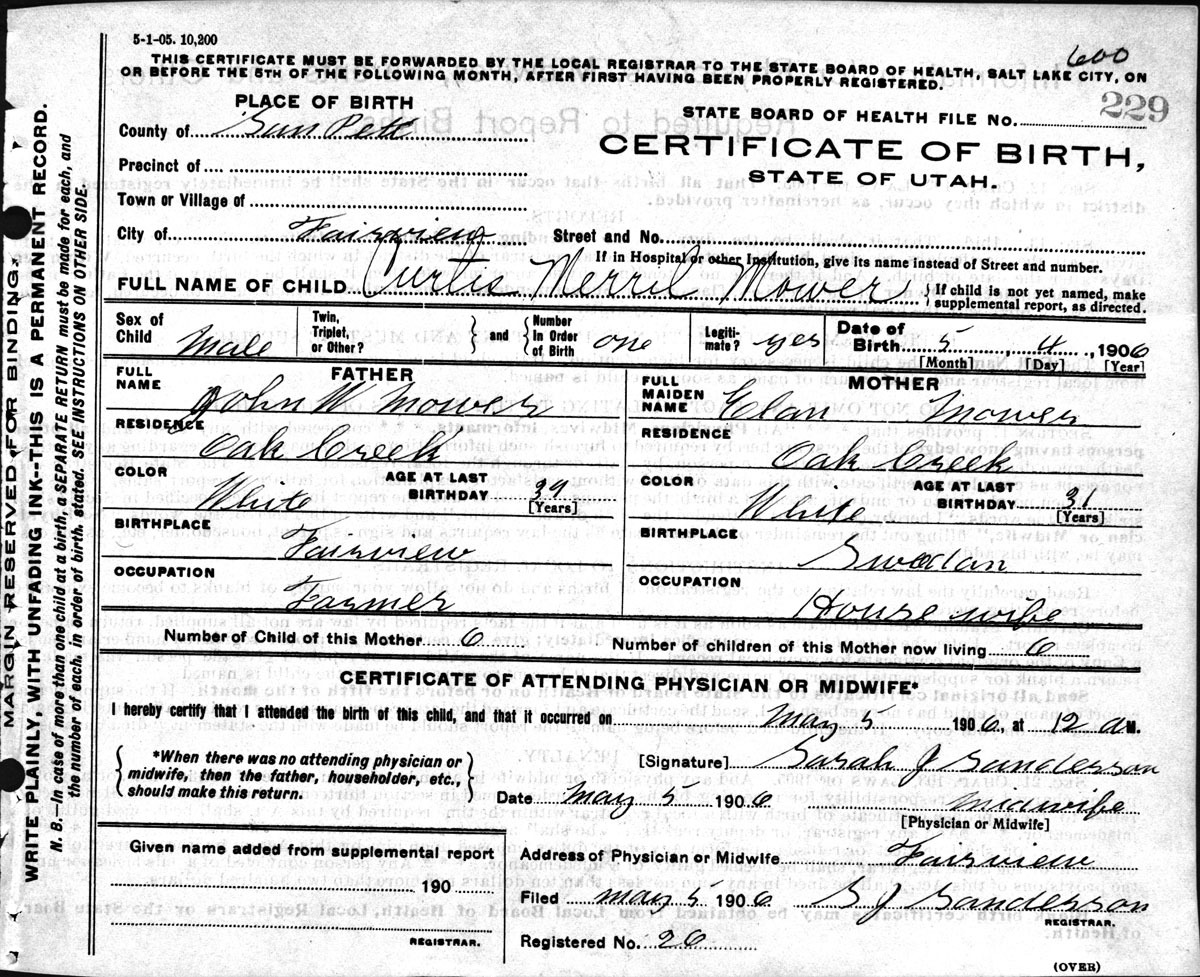 5-1-05. 10,200
600
THIS CERTIFICATE MUST BE FORWARDED BY THE LOCAL REGISTRAR TO THE STATE BOARD OF HEALTH, SALT LAKE CITY, ON
OR BEFORE THE 5TH OF THE FOLLOWING MONTH, AFTER FIRST HAVING BEEN PROPERLY REGISTERED.
PLACE OF BIRTH
STATE BOARD OF HEALTH FILE NO. 229
County of San Pete
CERTIFICATE OF BIRTH,
Precinct of
STATE OF UTAH.
Town or Village of
City of Fairview Street and No.
If in Hospital or other Institution, give its name instead of Street and number.
FULL NAME OF CHILD Curtis Merril Mower { If child is not yet named, make supplemental report, as directed.
Sex of Child Male Twin, Triplet, or Other? } and { Number in Order of Birth one Legiti- mate? yes Date of Birth 5 4, 1906
[Month] [Day] [Year]
FATHER
FULL NAME John W Mower
RESIDENCE Oak Creek
COLOR White AGE AT LAST BIRTHDAY 37 [Years]
BIRTHPLACE Fairview
OCCUPATION Farmer
MOTHER
FULL MAIDEN NAME Elan Mower
RESIDENCE Oak Creek
COLOR White AGE AT LAST BIRTHDAY 31 [Years]
BIRTHPLACE Swedan
OCCUPATION House wife
Number of Child of this Mother 6 Number of children of this Mother now living 6
CERTIFICATE OF ATTENDING PHYSICIAN OR MIDWIFE.*
I hereby certify that I attended the birth of this child, and that it occurred on May 5 1906, at 12 a M.
{ *When there was no attending physician or midwife, then the father, householder, etc., should make this return. }
[Signature] Sarah J Sanderson
Date May 5 1906 midwife
[Physician or Midwife]
Given name added from supplemental report
190
REGISTRAR.
Address of Physician or Midwife Fairview
Filed May 5 1906 S J Sanderson
REGISTRAR.
Registered No. 26
(OVER)
MARGIN RESERVED FOR BINDING.
WRITE PLAINLY, WITH UNFADING INK--THIS IS A PERMANENT RECORD.
N. B.--In case of more than one child at a birth, a SEPARATE RETURN must be made for each, and
the number of each, in order of birth, stated. SEE INSTRUCTIONS ON OTHER SIDE.